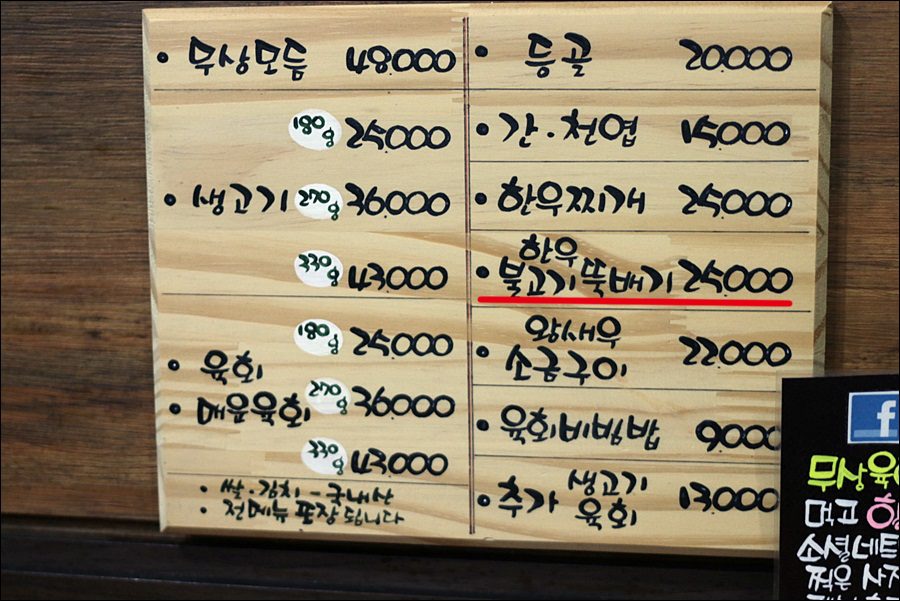 • 무상모듬 48000
180g 25000
• 생고기 270g 36000
330g 43000
180g 25000
• 육회
• 매운육회 270g 36000
330g 43000
• 쌀.김치-국내산
• 전메뉴 포장 됩니다
• 등골 20000
• 간.천엽 15000
• 한우찌개 25000
한우
• 불고기뚝배기 25000
왕새우
• 소금구이 22000
• 육회비빔밥 9000
생고기
• 추가 육회 13000
f
무상육
먹고
소셜네트
찍은 사